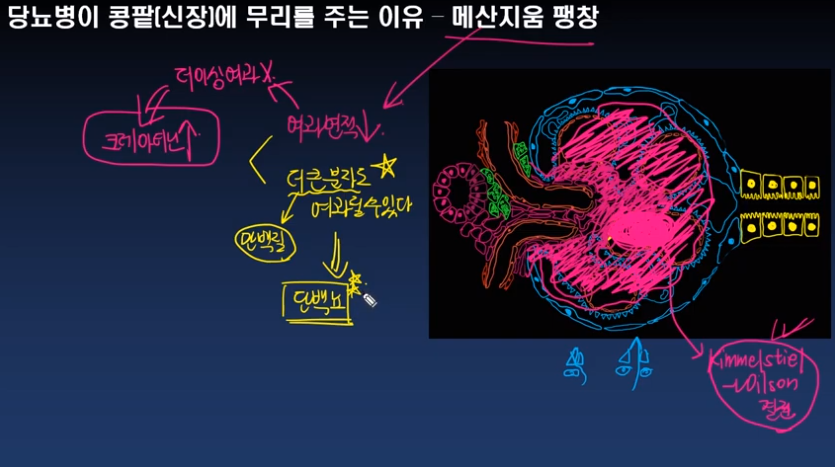 당뇨병이 콩팥(신장)에 무리를 주는 이유 – 메산지움 팽창
더이상 여과X.
크레아티닌↑
여과면적↓
더 큰 분자도
여과될 수 있다
단백질
단백뇨
Kimmelstiel
-Wilson
결절